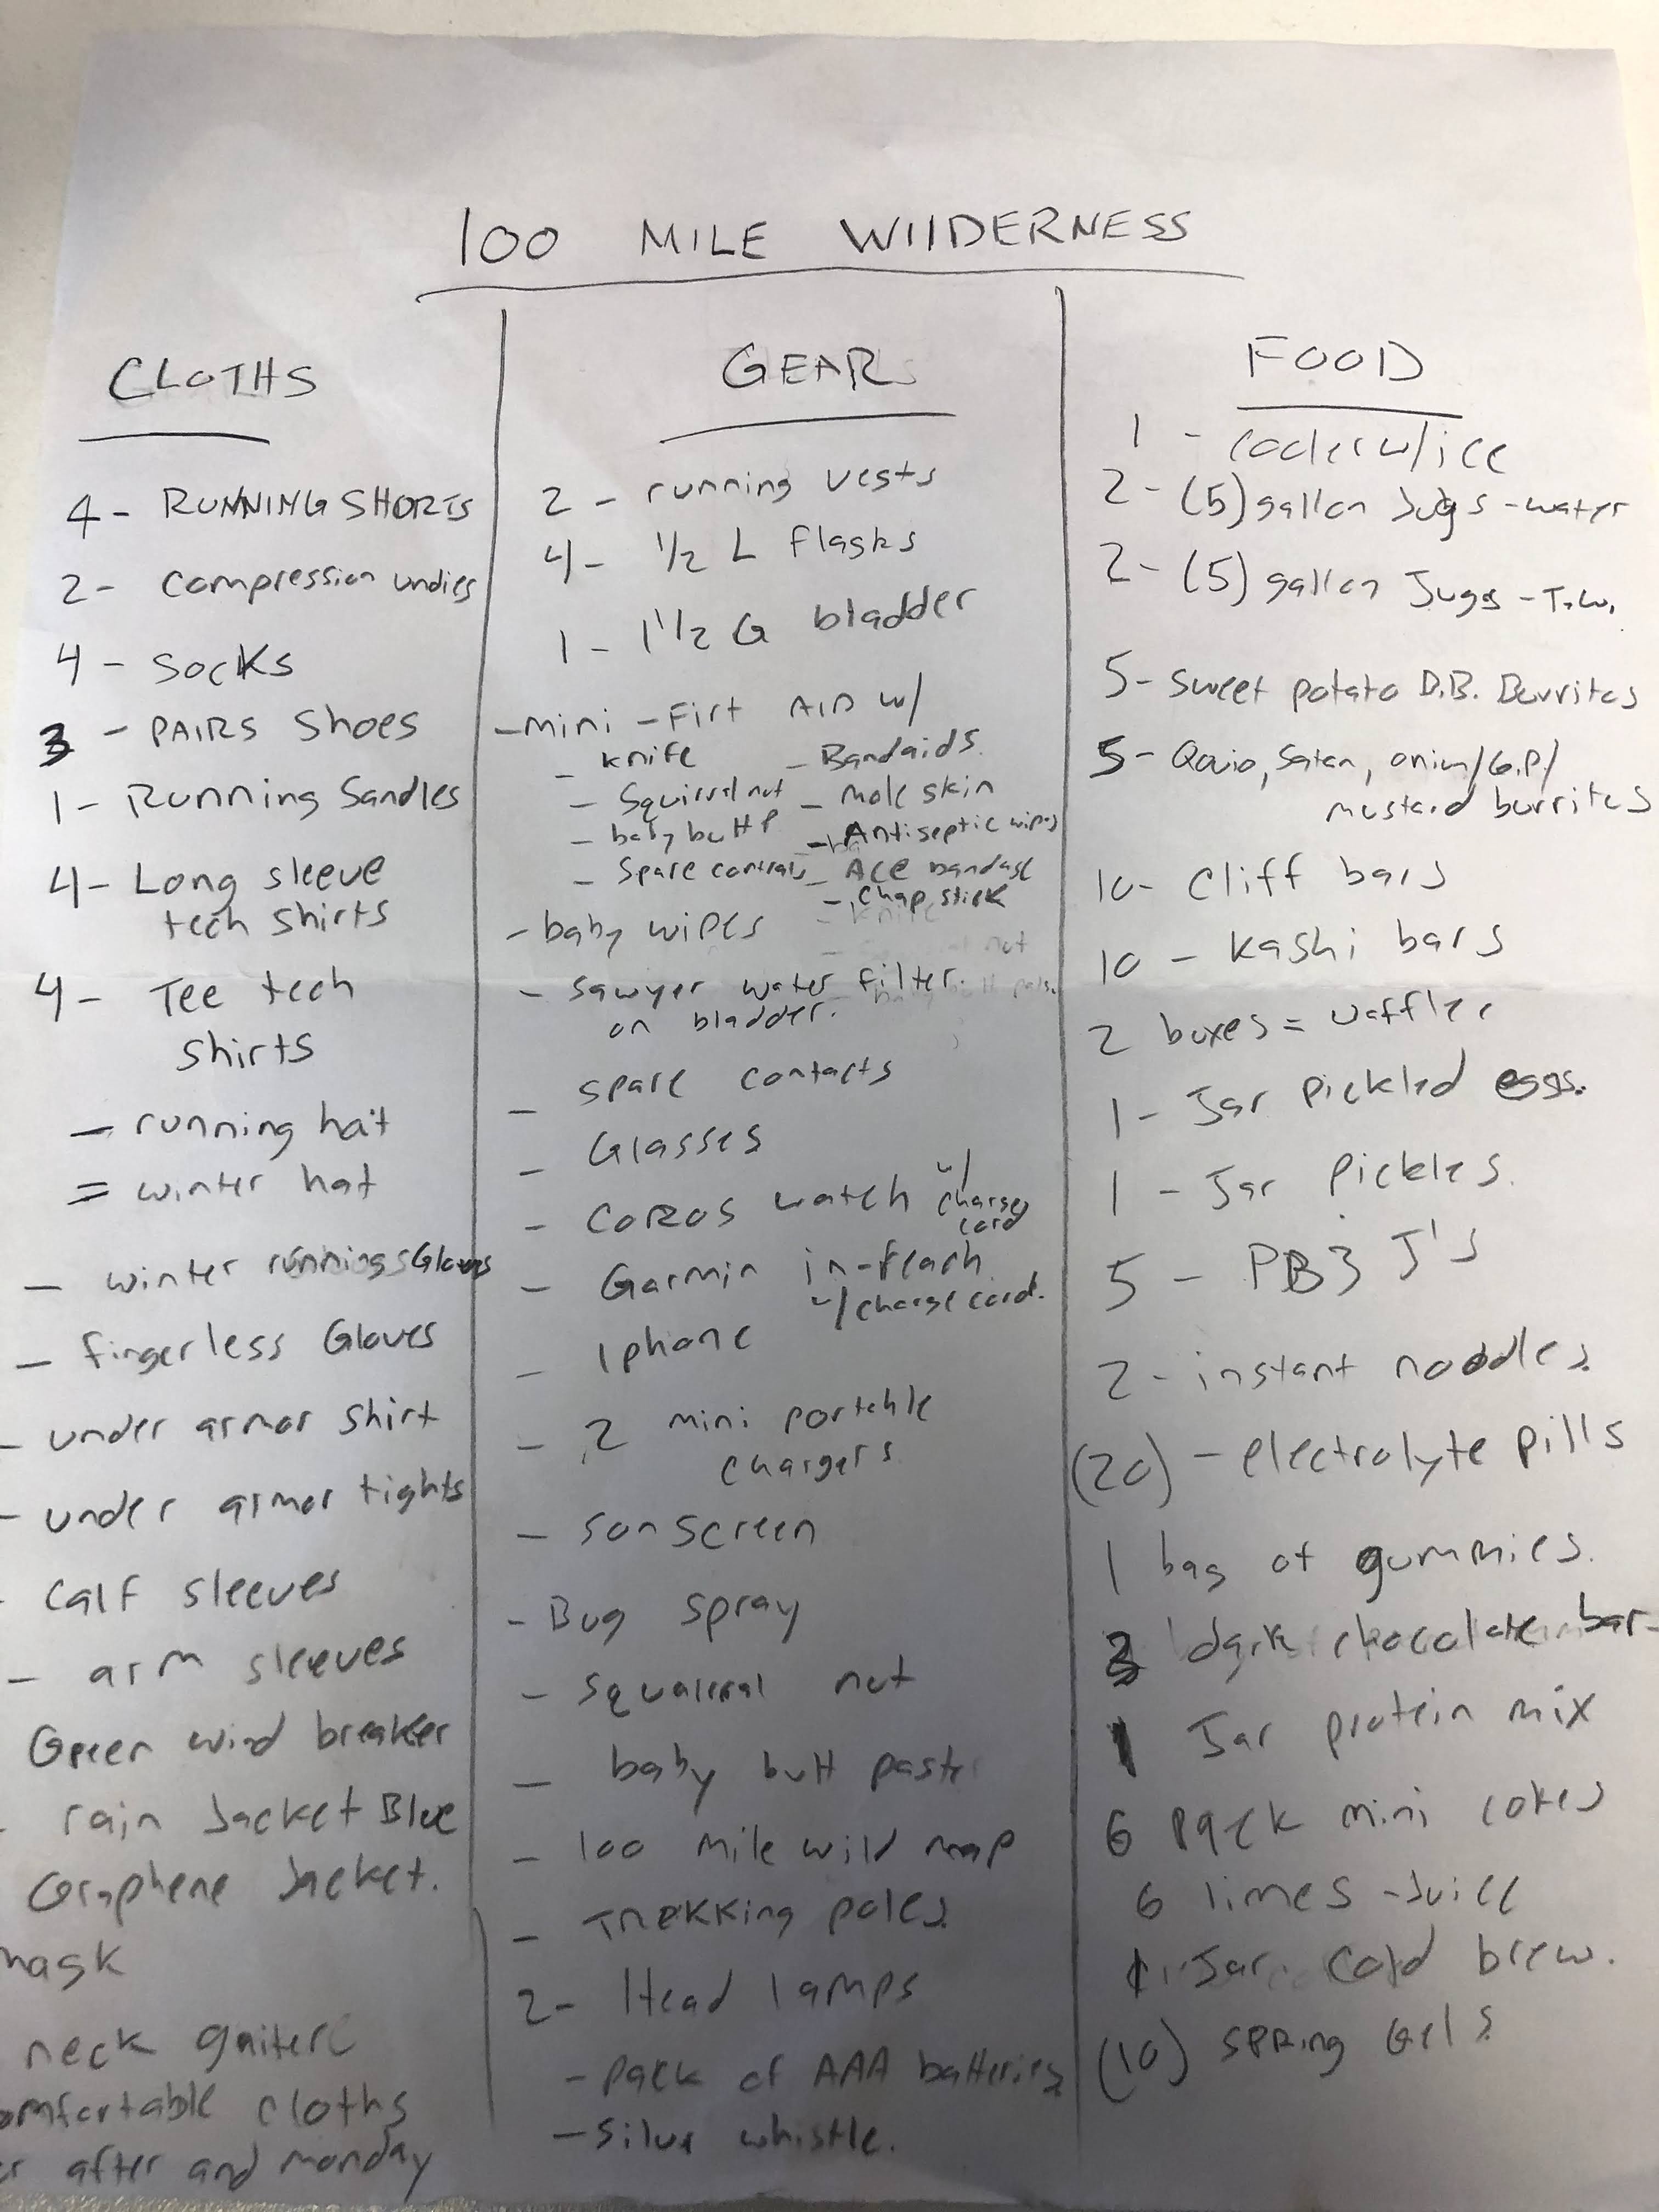 100 MILE WIIDERNESS
CLOTHS
4 - RUNNING SHORTS
2 - Compression undies
4 - Socks
3 - PAIRS Shoes
1 - Running Sandles
4 - Long sleeve
tech shirts
4 - Tee tech
shirts
- running hat
= winter hat
- winter running Gloves
- fingerless Gloves
- under armor shirt
- under armor tights
- calf sleeves
- arm sleeves
Green wind breaker
- rain Jacket Blue
Graphene Jacket.
mask
neck gaiter
comfortable cloths
after and monday
GEAR
2 - running vests
4 - 1/2 L flasks
1 - 1 1/2 G bladder
- mini - Firt AID w/
- knife - Bandaids.
- Squirrel nut - Mole skin
- baby butt P - Antiseptic wipes
- Spare contacts - ACE bandage
- Chap stick
- baby wipes
- Sawyer water filter.
on bladder.
- spare contacts
- Glasses
- COROS watch w/
charge
cord
- Garmin in-reach
w/ charge cord.
- Iphone
- 2 mini portable
chargers
- Sunscreen
- Bug spray
- Squaleral nut
- baby butt paste
- 100 mile wild map
- TREKKing poles
2 - Head lamps
- pack of AAA batteries
- Silver whistle.
FOOD
1 - cooler w/ice
2 - (5) gallon Jugs - water
2 - (5) gallon Jugs - T.W.
5 - Sweet potato D.B. Burritos
5 - Satan, onion/G.P./
mustard burritos
10 - Cliff bars
10 - Kashi bars
2 boxes = waffles
1 - Jar pickled eggs.
1 - Jar pickles.
5 - PB3 J's
2 - instant noodles
(20) - electrolyte pills
1 bag of gummies.
3 dark chocolate bar
1 Jar protein mix
6 pack mini cokes
6 limes - Juice
1 Jar cold brew.
(10) SPRing Gels